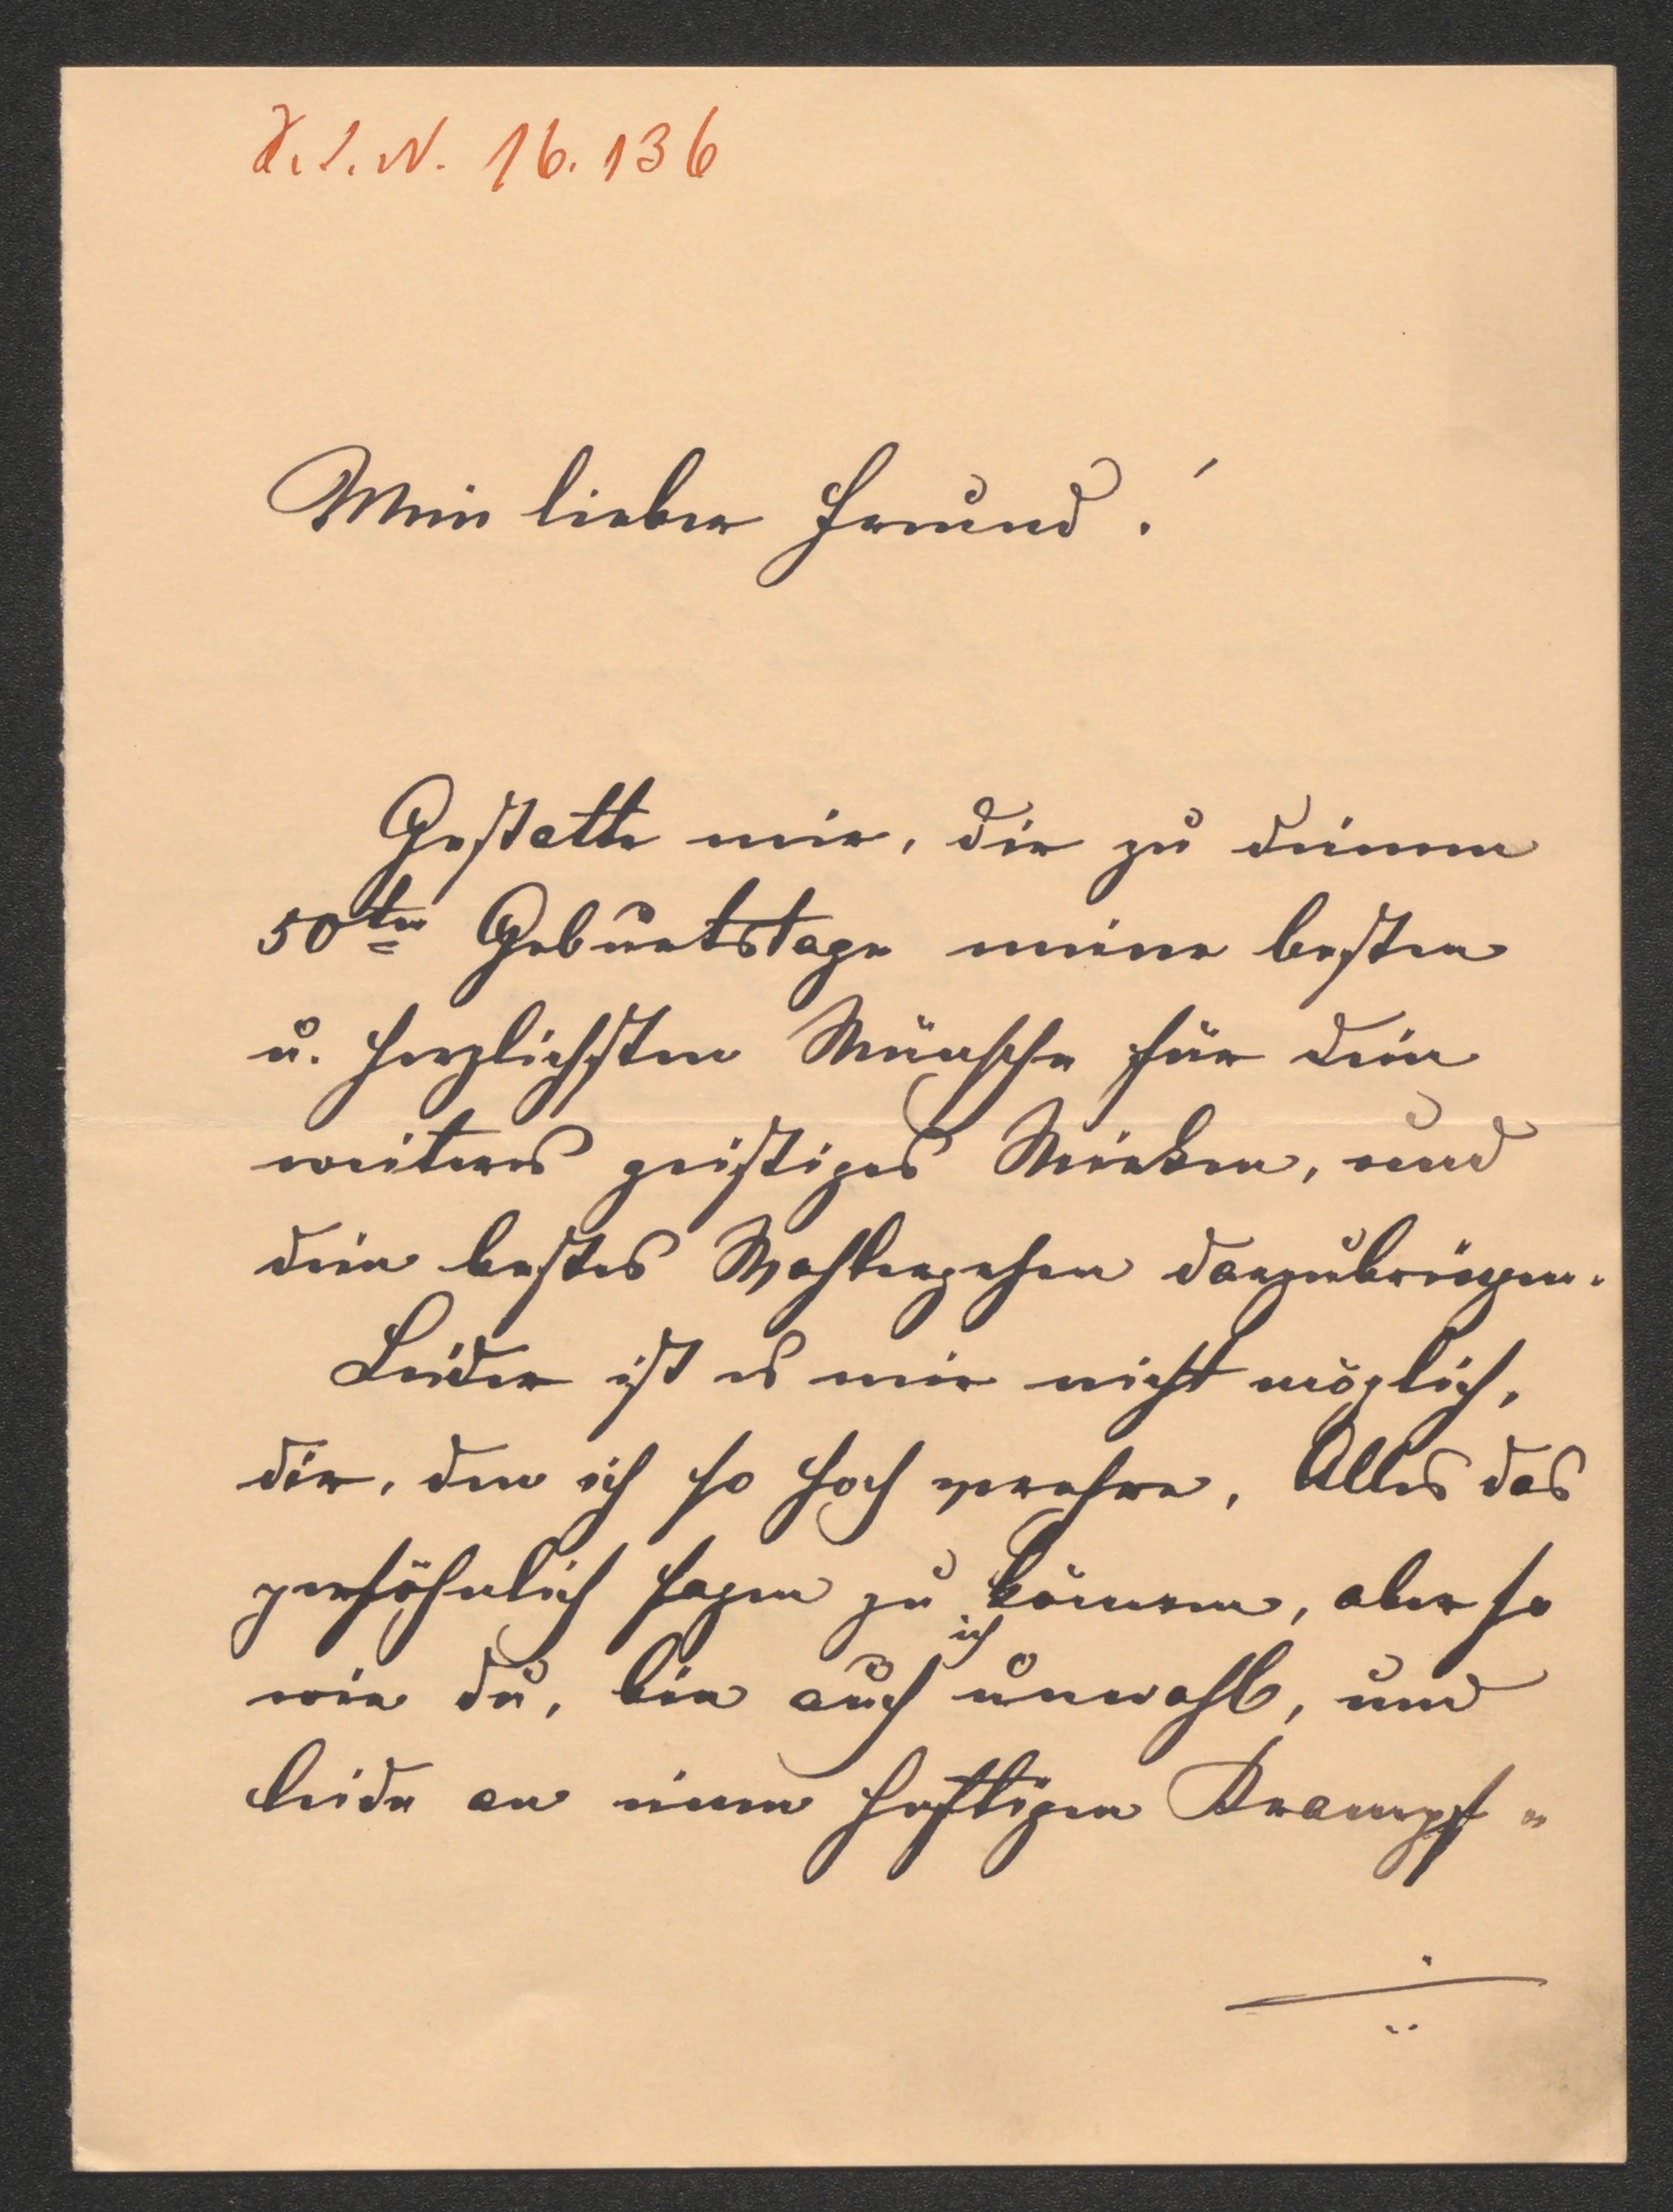 H.I.N. 16.136
Mein lieber Freund!
Gestatte mir, dir zu deinem
50ten Geburtstage meine besten
u. herzlichsten Wünsche für dein
weiteres geistiges Wirken, und
dein bestes Wohlergehen darzubringen.
Leider ist es mir nicht möglich,
dir, den ich so hoch verehre, Alles das
persöhnlich sagen zu können, aber so
wie du, bin auch ich unwohl, und
leide an einem heftigen Krampf-